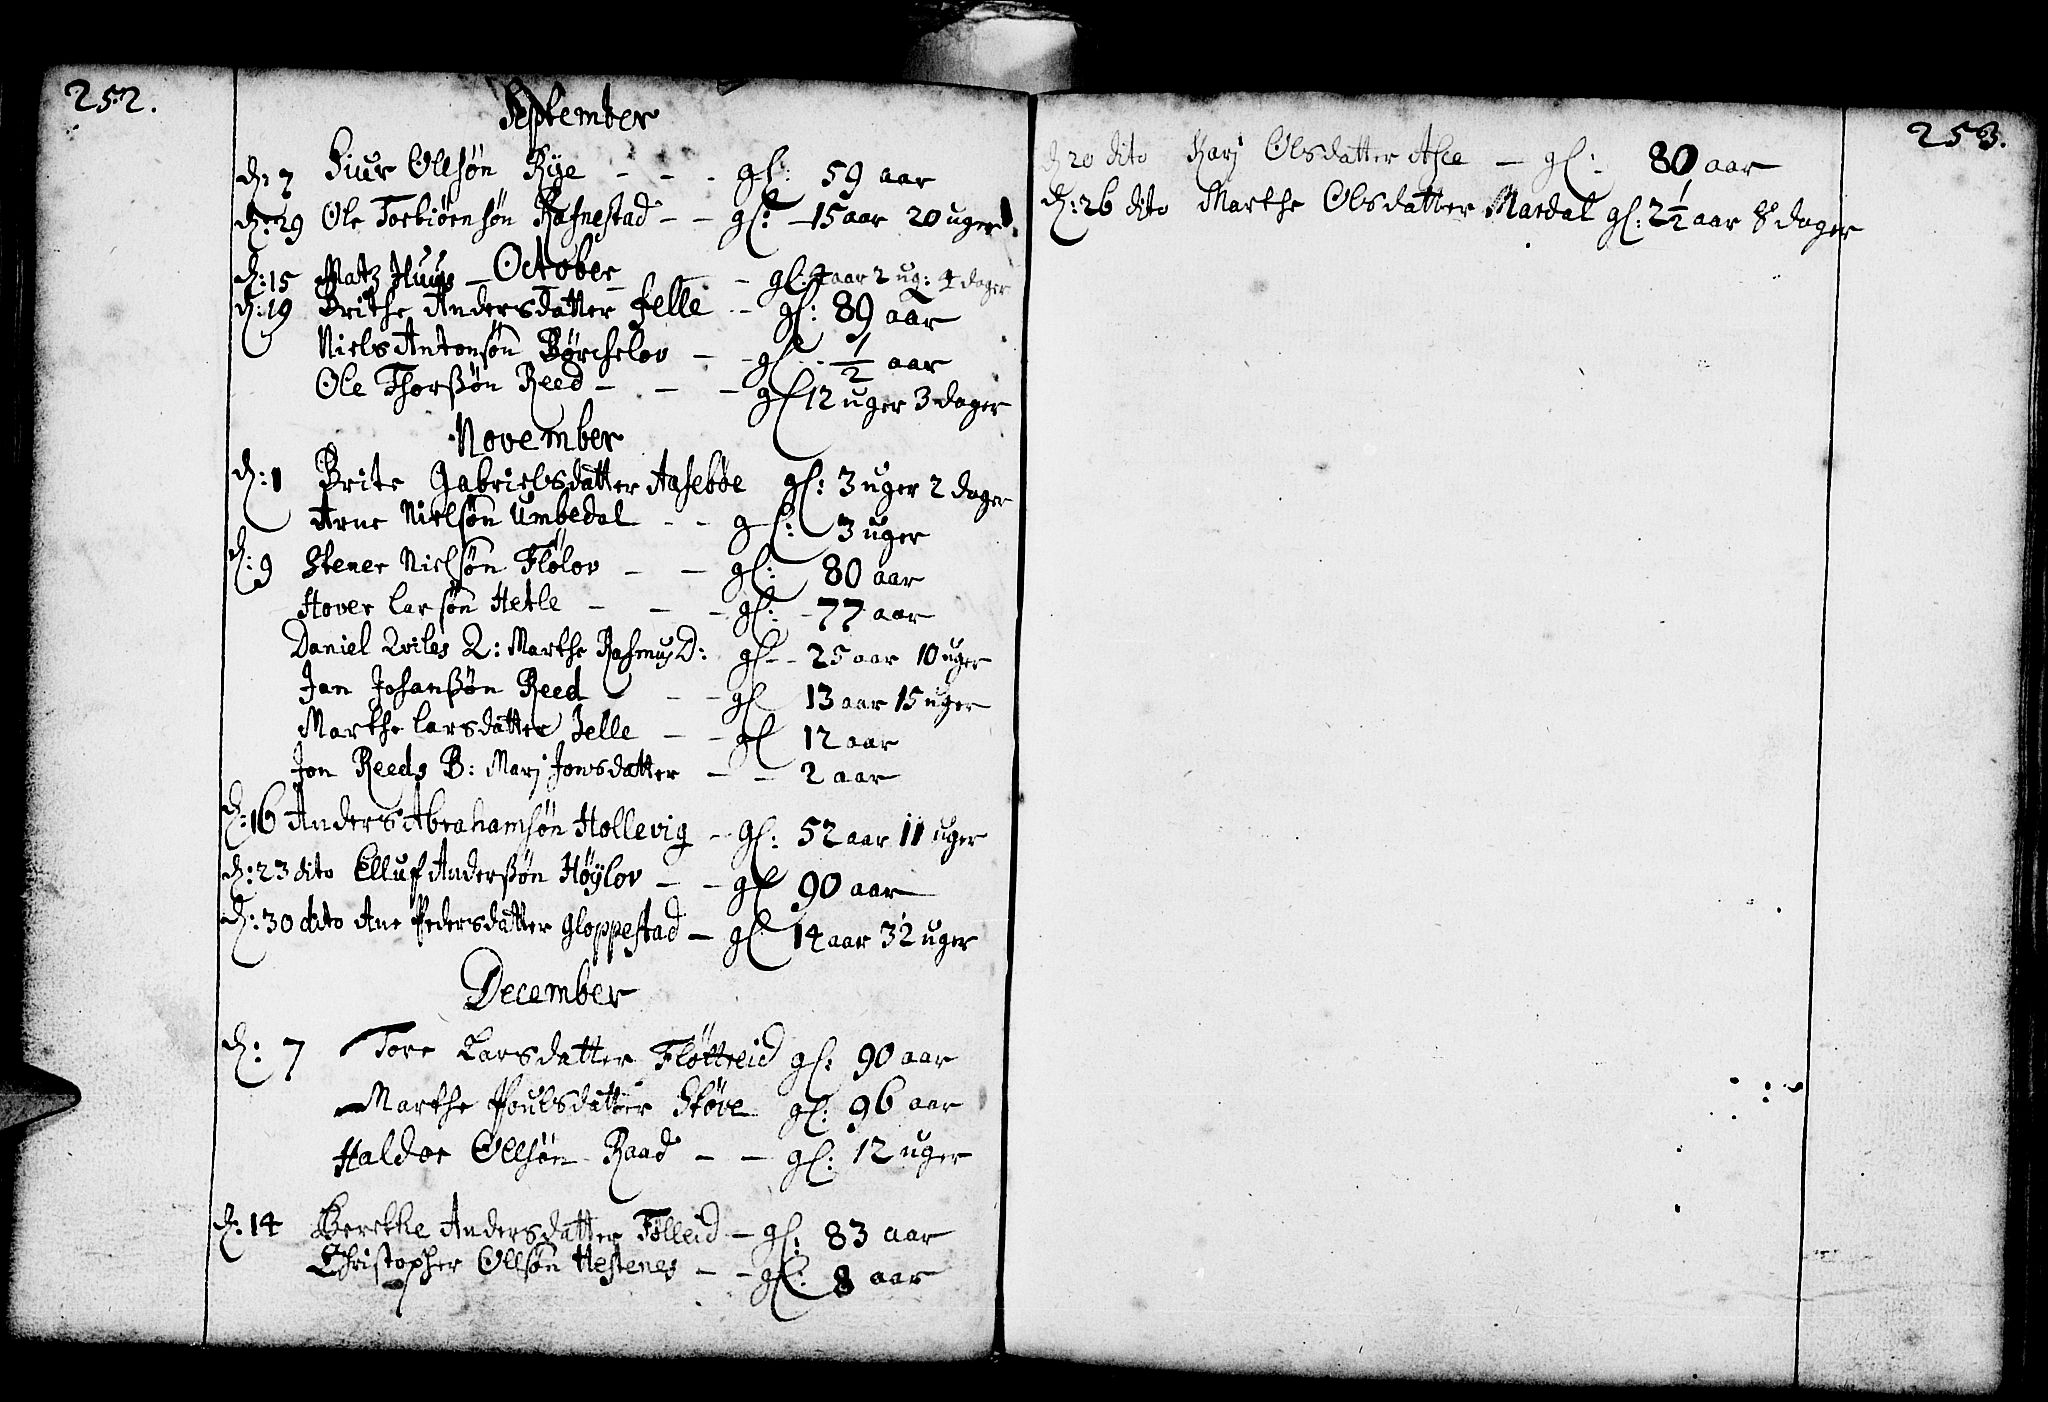 252.
September
d: 7 Siur Ollsøn Rye - - - gl: 59 aar
d: 29 Ole Torbiørnsøn Rafnestad - - gl: - 15 aar 20 uger
October
d: 15 Matz Huus - - gl: 4 aar 2 ug: 4 dager
d: 19 Brithe Andersdatter Felle - gl: 89 aar
Niels Antonsøn Børchelov - - gl - 1/2 aar
Ole Thorßøn Reed - - - gl 12 uger 3 dager
November
d: 1 Brite Gabrielsdatter Aasebøe gl: 3 uger 2 dager
Arne Nielsøn Umbedal - - gl: 3 uger
d: 9 Stener Nielsøn Flølov - - gl: 80 aar
Hover Larsøn Hetle - - - gl: - 77 aar
Daniel Qviles Q: Marthe RasmusD: gl - - 25 aar 10 uger
Jan Johanßøn Reed - - gl 13 aar 15 uger
Marthe Larsdatter Felle - - gl 12 aar
Jon Reeds B: Marj Jonsdatter - - 2 aar
d: 16 Anders Abrahamsøn Hollevig - gl: 52 aar 11 uger
d: 23 dito Elluf Anderßøn Høylov - - gl 90 aar
d: 30 dito Ane Pedersdatter Gloppestad - gl 14 aar 32 uger
December
d: 7 Tore Larsdatter Fløttreid gl: 90 aar
Marthe Poulsdatter Støve gl: 96 aar
Haldor Ollsøn Raad - - gl: 12 uger
d: 14 Berethe Andersdatter Følleid - gl: 83 aar
Christopher Ollsøn Hestenes - - gl: 8 aar
253.
d 20 dito Karj Olsdatter - gl: 80 aar
d: 26 dito Marthe Olsdatter Mardal gl: 2 1/2 aar 8 dager